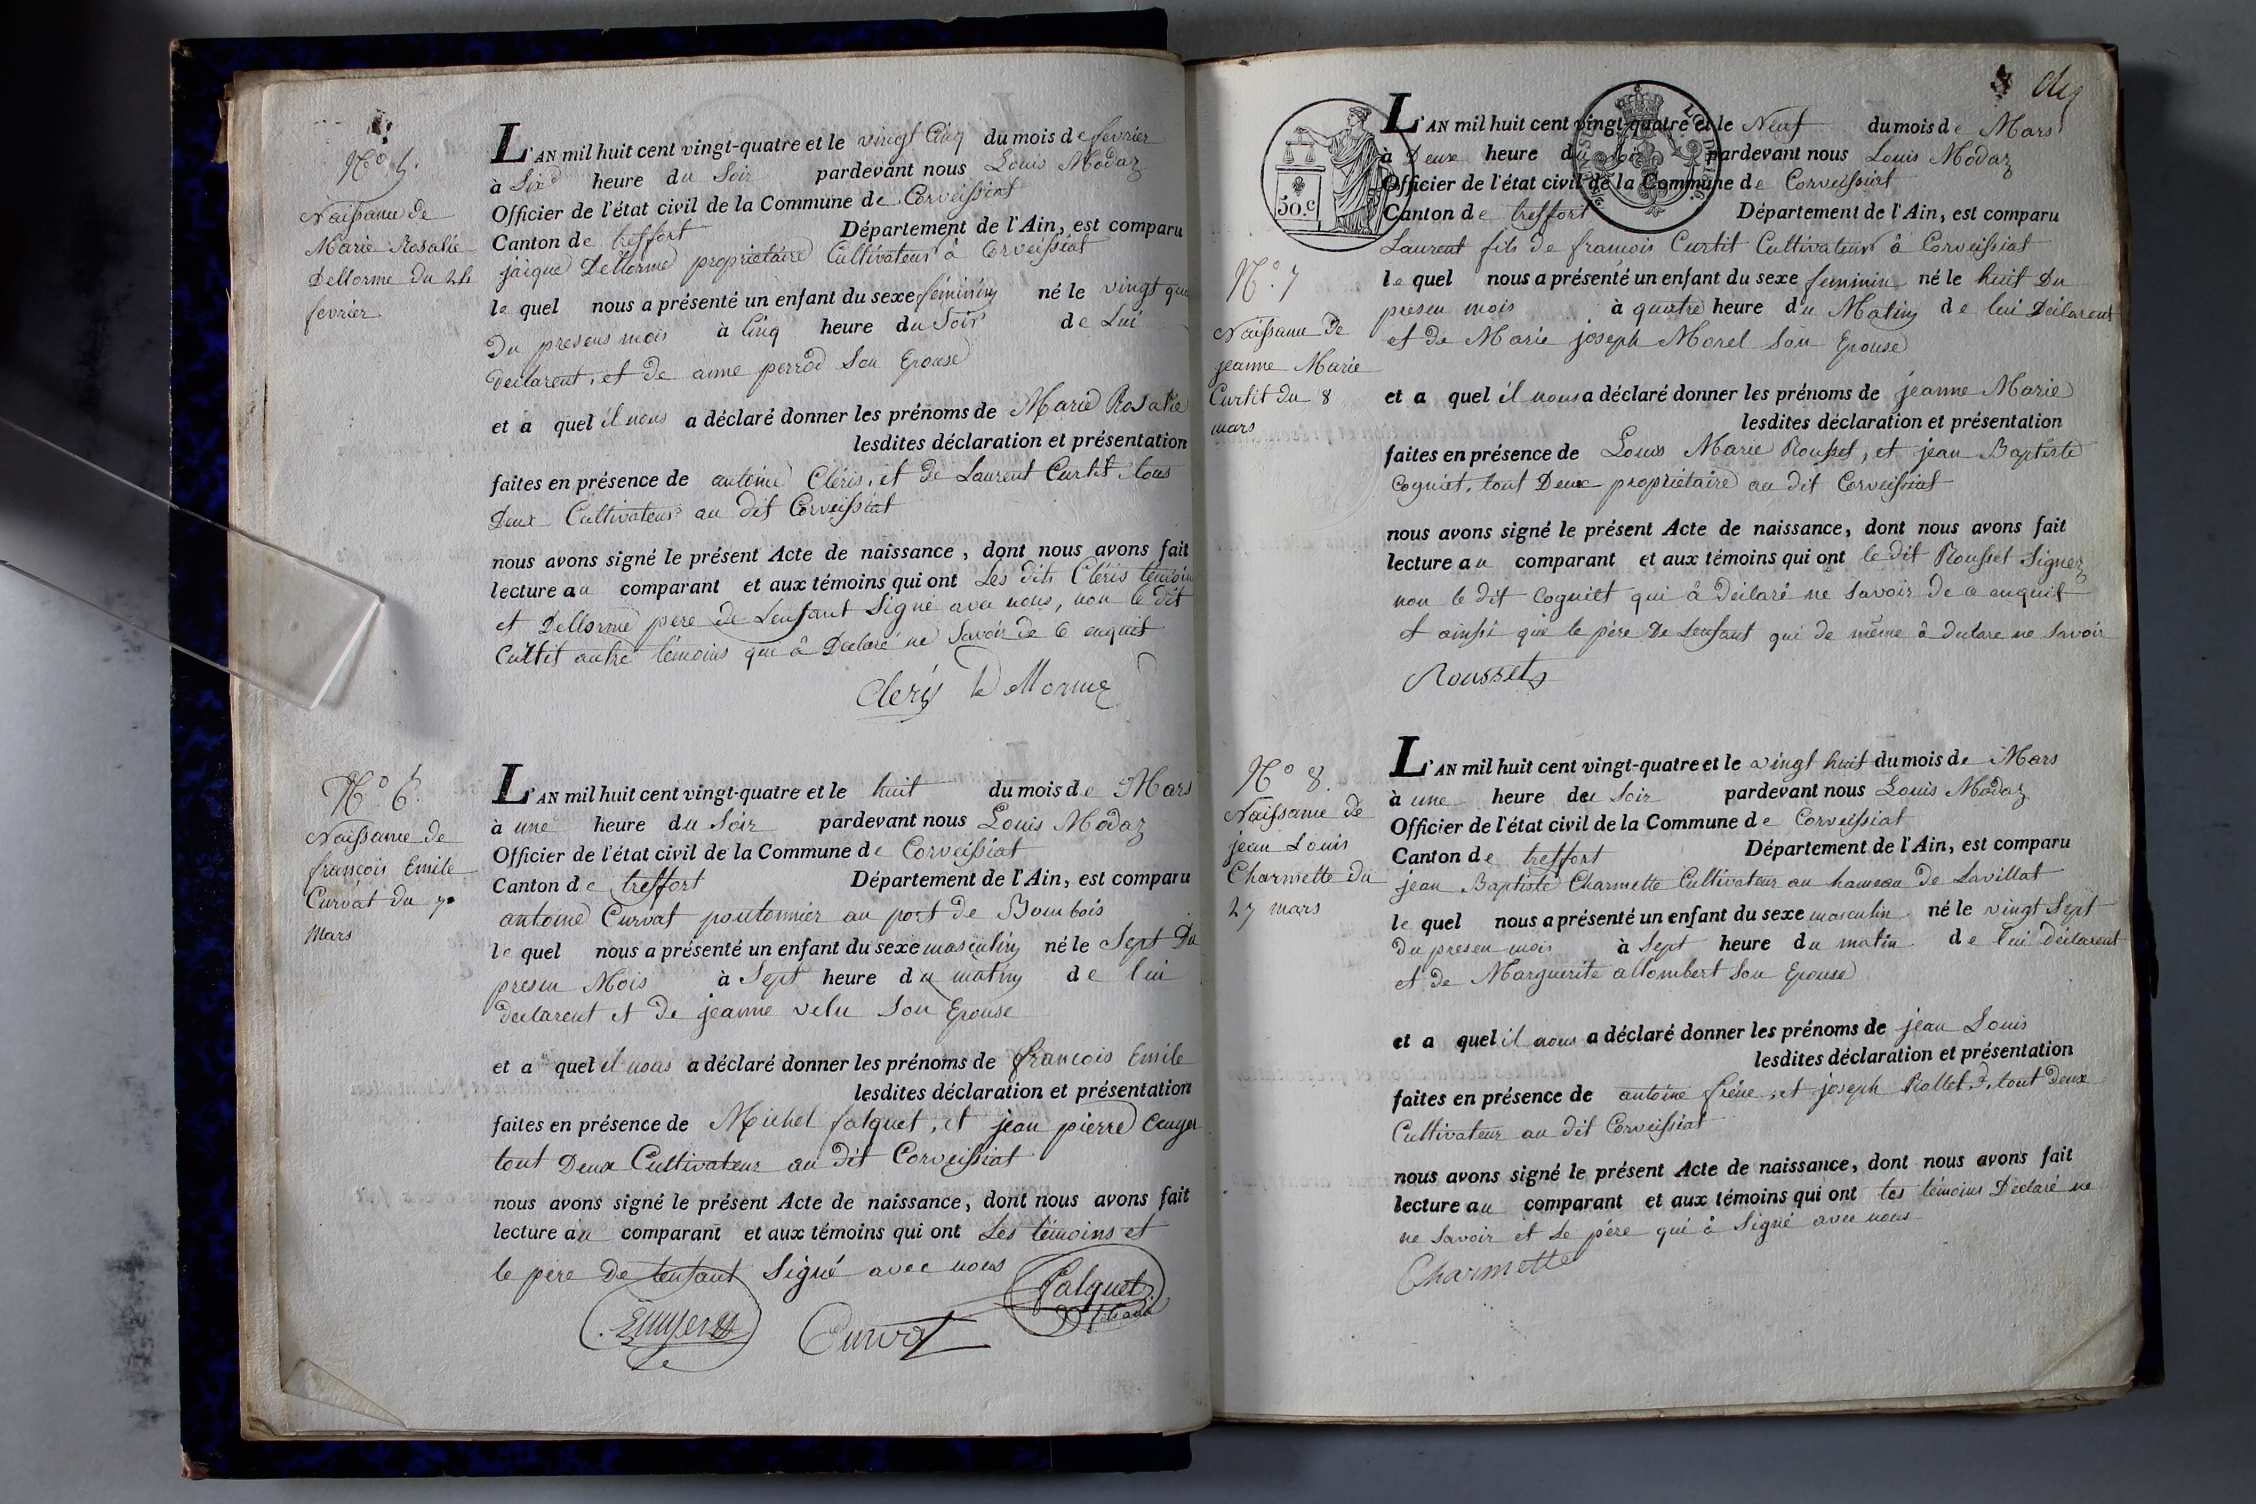 N.o 5.
Naissance de
Marie Rosalie
Dellorme du 24
fevrier
L'AN mil huit cent vingt-quatre et le vingt Cinq du mois de fevrier
à Six heure du Soir pardevant nous Louis Modaz
Officier de l'état civil de la Commune de Corveissiat
Canton de treffort Département de l'Ain, est comparu
jaique Dellorme proprietaire Cultivateur à Corveissiat
le quel nous a présenté un enfant du sexe féminin né le vingt qua
du presens mois à Cinq heure du Soir de Lui
declarent, et de anne perrod Son Epouse
et a quel il nous a déclaré donner les prénoms de Marie Rosalie
lesdites déclaration et présentation
faites en présence de antoine Cléris, et de Laurent Curtit tous
Deux Cultivateur au dit Corveissiat
nous avons signé le présent Acte de naissance, dont nous avons fait
lecture au comparant et aux témoins qui ont Les dits Cléris témoin
et Dellorme pere de Lenfant Signé avec nous, non le dit
Curtit autre témoins qui à Déclaré ne Savoir de ce enquit
Cleris Dellorme
N.o 6.
Naissance de
françois Emile
Curvat du 7
Mars
L'AN mil huit cent vingt-quatre et le huit du mois de Mars
à une heure du Soir pardevant nous Louis Modaz
Officier de l'état civil de la Commune de Corveissiat
Canton de treffort Département de l'Ain, est comparu
antoine Curvat pontonnier au port de Bombois
le quel nous a présenté un enfant du sexe masculin né le Sept Du
presen Mois à Sept heure du matin de lui
declarent et de jeanne velu Son Epouse
et a quel il nous a déclaré donner les prénoms de françois Emile
lesdites déclaration et présentation
faites en présence de Michel falquet, et jean pierre Ecuyer
tout Deux Cultivateur au dit Corveissiat
nous avons signé le présent Acte de naissance, dont nous avons fait
lecture au comparant et aux témoins qui ont Les témoins et
le pere de lenfant Signé avec nous
Curvat Falquet
50.c
L'AN mil huit cent vingt-quatre et le Neuf du mois de Mars
à Deux heure du pardevant nous Louis Modaz
Officier de l'état civil de la Commune de Corveissiat
Canton de treffort Département de l'Ain, est comparu
Laurent fils de francois Curtit Cultivateur à Corveissiat
N.o 7
Naissance de
jeanne Marie
Curtit du 8
mars
le quel nous a présenté un enfant du sexe feminin né le huit Du
presen mois à quatre heure du Matin de lui Déclarent
et de Marie joseph Morel Son Epouse
et a quel il nous a déclaré donner les prénoms de jeanne Marie
lesdites déclaration et présentation
faites en présence de Louis Marie Rousset, et jean Baptiste
Cogniet, tout Deux propriétaire au dit Corveissiat
nous avons signé le présent Acte de naissance, dont nous avons fait
lecture au comparant et aux témoins qui ont le dit Rousset Signez
non le dit Cogniet qui à Déclaré ne Savoir de ce enquit
et ainsi que le père De Lenfant qui de même à declare ne Savoir
Rousset
N.o 8.
Naissance de
jean Louis
Charmette du
27 mars
L'AN mil huit cent vingt-quatre et le vingt huit du mois de Mars
à une heure du Soir pardevant nous Louis Modaz
Officier de l'état civil de la Commune de Corveissiat
Canton de treffort Département de l'Ain, est comparu
jean Baptiste Charmette Cultivateur au hameau de Lavillat
le quel nous a présenté un enfant du sexe masculin né le vingt Sept
du presen mois à Sept heure du matin de lui déclarent
et de Marguerite allombert Son Epouse
et a quel il nous a déclaré donner les prénoms de jean Louis
lesdites déclaration et présentation
faites en présence de antoine frêne, et joseph Rollet, tout Deux
Cultivateur au dit Corveissiat
nous avons signé le présent Acte de naissance, dont nous avons fait
lecture au comparant et aux témoins qui ont les témoins Déclaré ne
ne Savoir et Le père qui à Signé avec nous
Charmette